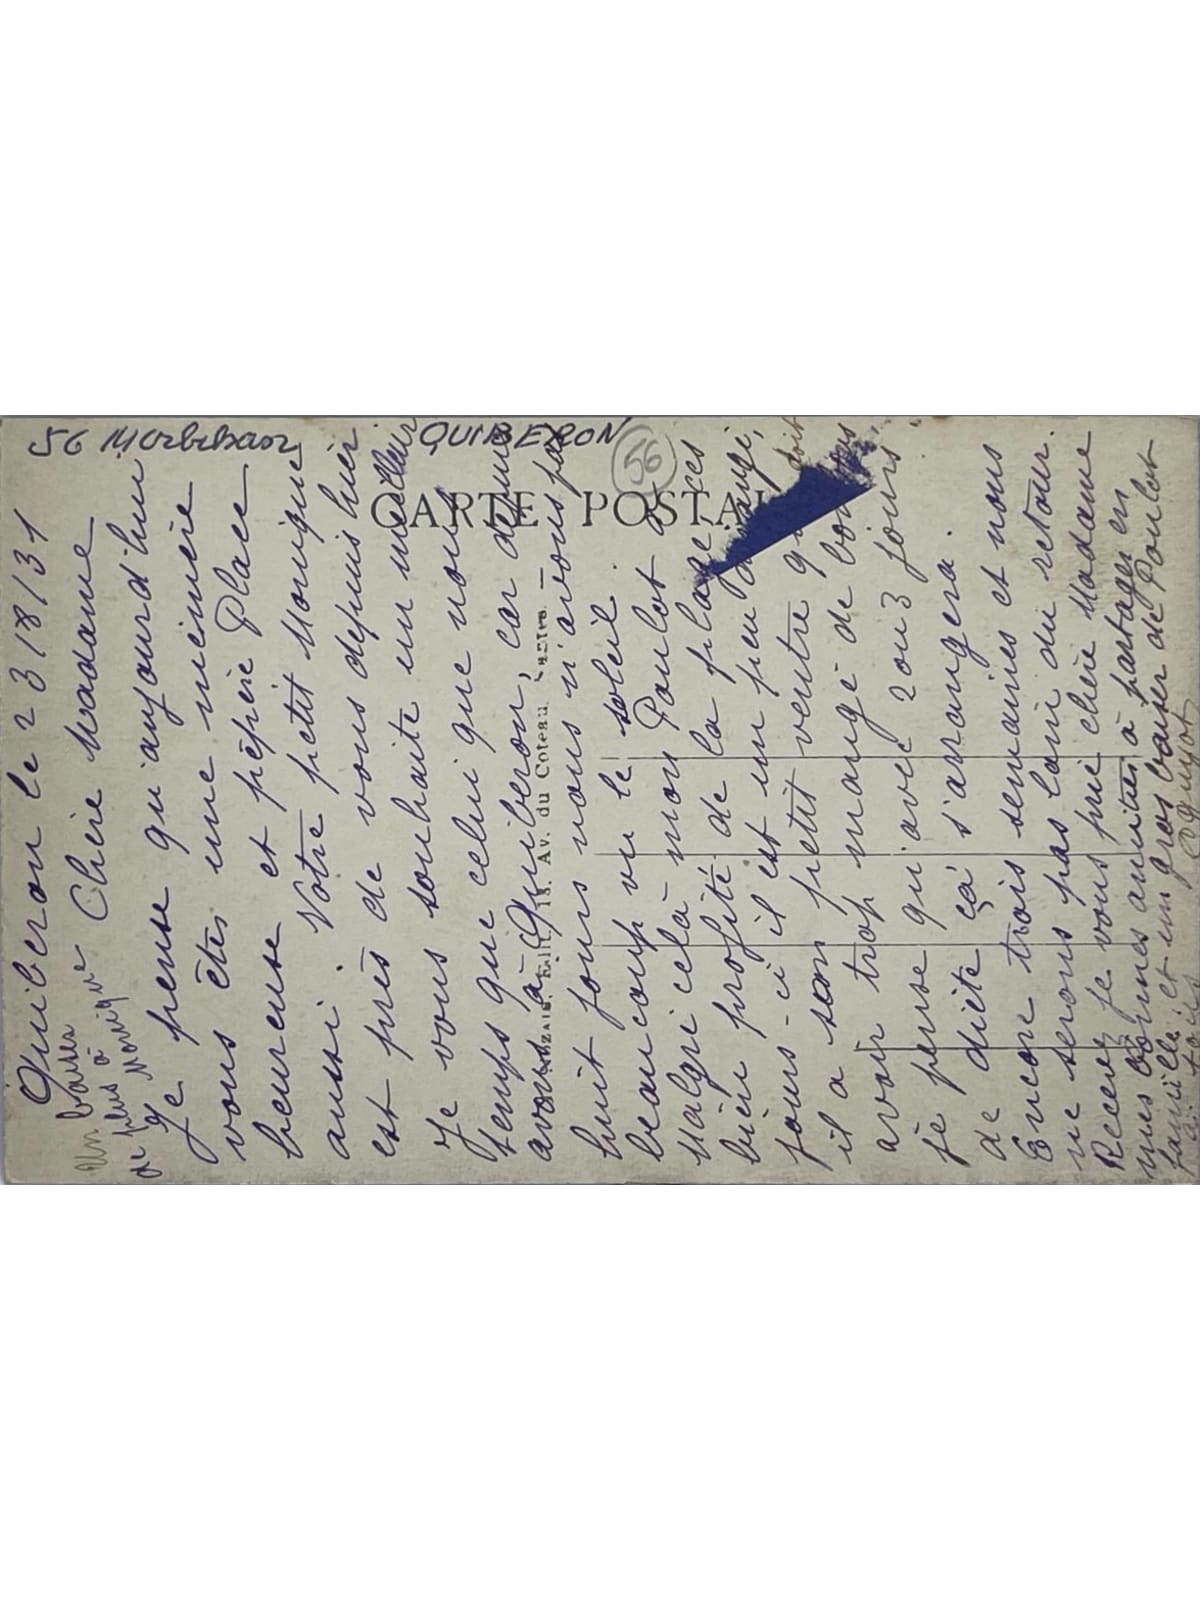 56 Morbihan QUIBERON
56
CARTE POSTALE
Av. du Coteau, Nantes. —
Quiberon le 23/8/31
Chère Madame
Je pense qu'aujourd'hui
vous êtes une mémère
heureuse et pépère Place
aussi. Notre petit Monique
est près de vous depuis hier.
Je vous souhaite un meilleur
temps que celui que nous
avons à Quiberon, car depuis
huit jours nous n'avons pas
beaucoup vu le soleil.
Malgré celà mon Poulot a
bien profité de la plage, ces
jours-ci il est un peu dérangé,
il a son petit ventre qui doit
avoir trop mangé de bonbons
je pense qu'avec 2 ou 3 jours
de diète çà s'arrangera.
Encore trois semaines et nous
ne serons pas loin du retour.
Recevez je vous prie chère Madame
mes bonnes amitiés à partager en
famille, et un gros baiser de Poulot
à tous
Guyot
Un baiser
de plus à
Monique